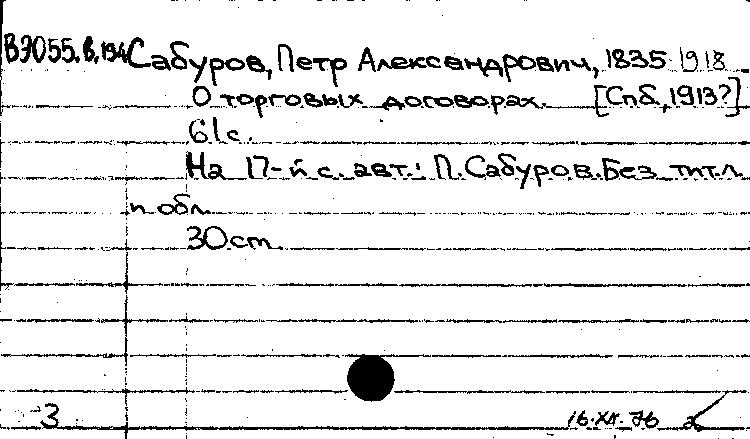 В9055.в.194 Сабуров, Петр Александрович, 1835 1918
О торговых договорах. [Спб, 1913?]
61с.
На 17-й с. авт.: П. Сабуров. Без тит. л.
и обл.
30cm.
3 16.XII.76